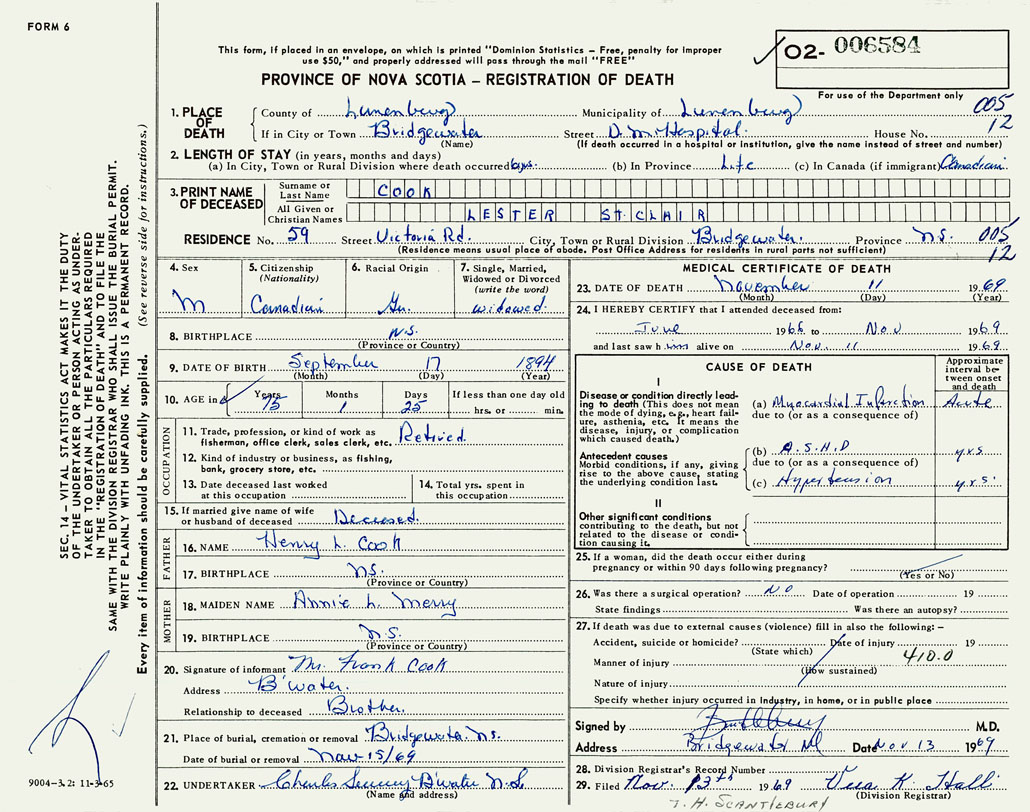 FORM 6
This form, if placed in an envelope, on which is printed "Dominion Statistics – Free, penalty for improper
use $50," and properly addressed will pass through the mail "FREE"
PROVINCE OF NOVA SCOTIA – REGISTRATION OF DEATH
02- 006584
For use of the Department only
1. PLACE OF DEATH
County of Lunenburg Municipality of Lunenburg 005
If in City or Town Bridgewater Street D. M. Hospital. House No. 12
(Name) (If death occurred in a hospital or institution, give the name instead of street and number)
2. LENGTH OF STAY (in years, months and days)
(a) In City, Town or Rural Division where death occurred (b) In Province Life (c) In Canada (if immigrant) Canadian.
3. PRINT NAME OF DECEASED
Surname or Last Name COOK
All Given or Christian Names LESTER ST. CLAIR
RESIDENCE No. 59 Street Victoria Rd. City, Town or Rural Division Bridgewater. Province N.S. 005
(Residence means usual place of abode. Post Office Address for residents in rural parts not sufficient) 12
4. Sex
M
5. Citizenship
(Nationality)
Canadian
6. Racial Origin
Ger.
7. Single, Married,
Widowed or Divorced
(write the word)
widowed.
8. BIRTHPLACE N.S.
(Province or Country)
9. DATE OF BIRTH September 17 1894
(Month) (Day) (Year)
10. AGE in Years Months Days If less than one day old
75 1 25 hrs. or min.
OCCUPATION
11. Trade, profession, or kind of work as
fisherman, office clerk, sales clerk, etc. Retired.
12. Kind of industry or business, as fishing,
bank, grocery store, etc.
13. Date deceased last worked
at this occupation
14. Total yrs. spent in
this occupation
15. If married give name of wife
or husband of deceased Deceased.
FATHER
16. NAME Henry L. Cook
17. BIRTHPLACE N.S.
(Province or Country)
MOTHER
18. MAIDEN NAME Annie L. Merry
19. BIRTHPLACE N.S.
(Province or Country)
20. Signature of informant Mr. Frank Cook
Address B'water.
Relationship to deceased Brother.
21. Place of burial, cremation or removal Bridgewater. N.S.
Date of burial or removal Nov 15/69
22. UNDERTAKER Charles B'water N.S.
(Name and address)
MEDICAL CERTIFICATE OF DEATH
23. DATE OF DEATH November 11 1969
(Month) (Day) (Year)
24. I HEREBY CERTIFY that I attended deceased from:
June 1966 to Nov 1969
and last saw him alive on Nov. 11 1969
CAUSE OF DEATH
Approximate
interval be-
tween onset
and death
I
Disease or condition directly lead-
ing to death (This does not mean
the mode of dying, e.g., heart fail-
ure, asthenia, etc. It means the
disease, injury, or complication
which caused death.)
(a) Myocardial Infarction Acute
due to (or as a consequence of)
Antecedent causes
Morbid conditions, if any, giving
rise to the above cause, stating
the underlying condition last.
(b) A.S.H.D yrs
due to (or as a consequence of)
(c) Hypertension yrs.
II
Other significant conditions
contributing to the death, but not
related to the disease or condi-
tion causing it.
25. If a woman, did the death occur either during
pregnancy or within 90 days following pregnancy?
(Yes or No)
26. Was there a surgical operation? NO Date of operation 19
State findings Was there an autopsy?
27. If death was due to external causes (violence) fill in also the following: –
Accident, suicide or homicide? Date of injury 19
(State which)
Manner of injury 410.0
(How sustained)
Nature of injury
Specify whether injury occurred in industry, in home, or in public place
Signed by M.D.
Address Bridgewater Date Nov 13 1969
28. Division Registrar's Record Number
29. Filed Nov. 13th 1969 Vera K. Hall
(Division Registrar)
J. H. SCANTLEBURY
SEC. 14 – VITAL STATISTICS ACT MAKES IT THE DUTY
OF THE UNDERTAKER OR PERSON ACTING AS UNDER-
TAKER TO OBTAIN ALL THE PARTICULARS REQUIRED
IN THE "REGISTRATION OF DEATH" AND TO FILE THE
SAME WITH THE DIVISION REGISTRAR WHO SHALL ISSUE THE BURIAL PERMIT.
WRITE PLAINLY WITH UNFADING INK. THIS IS A PERMANENT RECORD.
Every item of information should be carefully supplied. (See reverse side for instructions.)
9004-3.2: 11-3-65